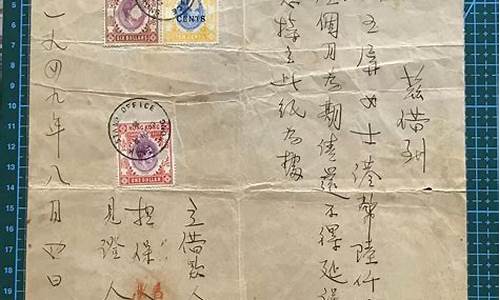 茲借到
女士港幣陸仟
個月為期清還不得延誤
立此紙為據
立借款人
担保人
見證人
一九四九年八月四日
TEN DOLLARS
CENTS
STAMP OFFICE
HONG KONG
ONE DOLLAR